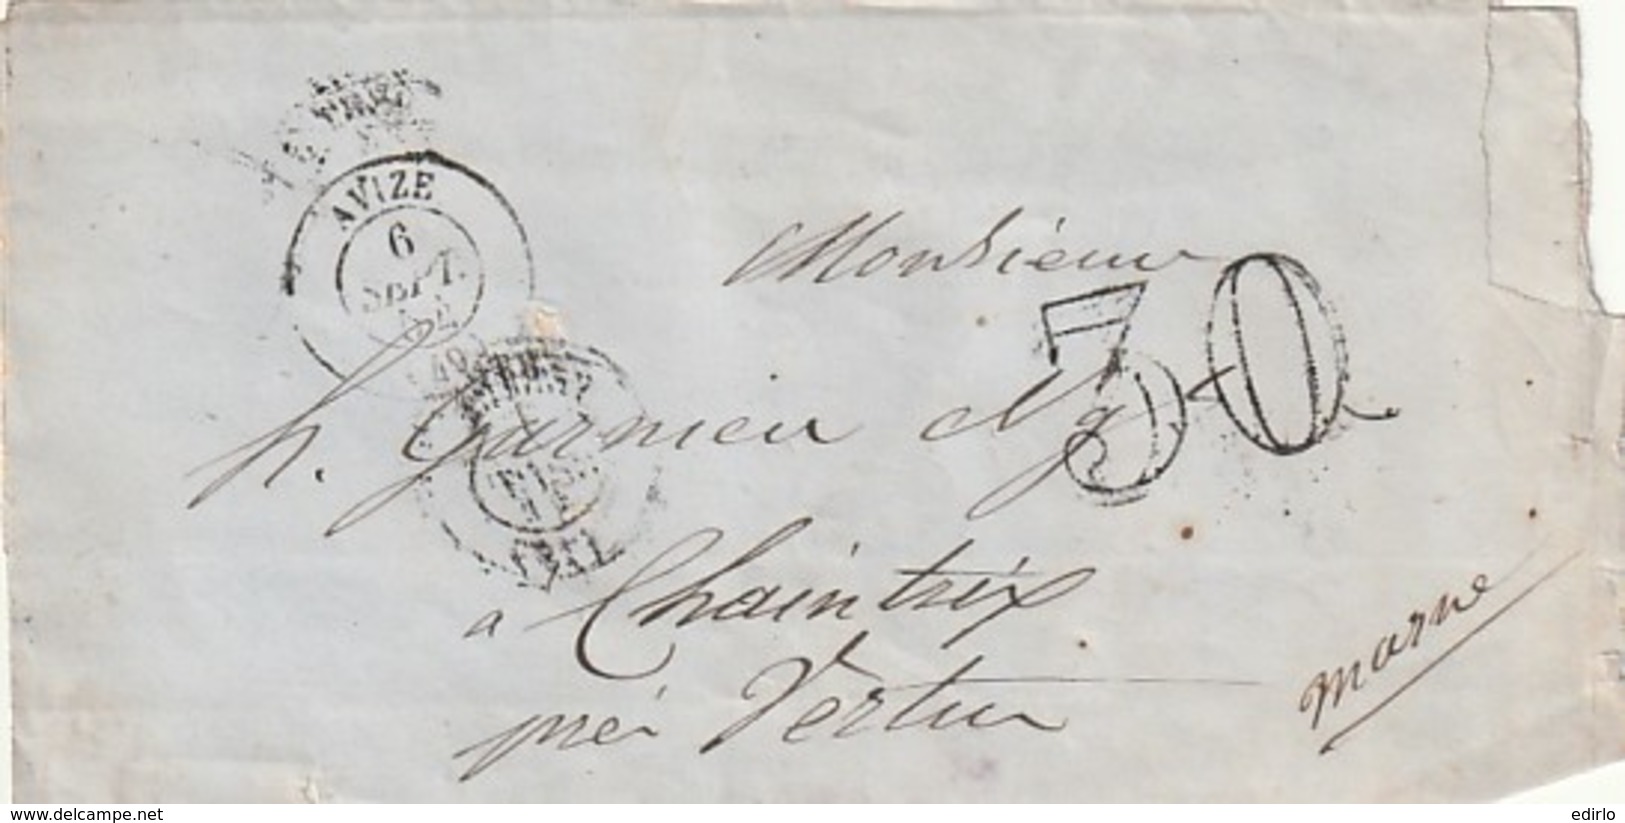 AVIZE
6
SEPT.
Monsieur
30
h. Garnier Ng
a Chaintrix
près Vertus
Marne
delcampe.net
edirlo